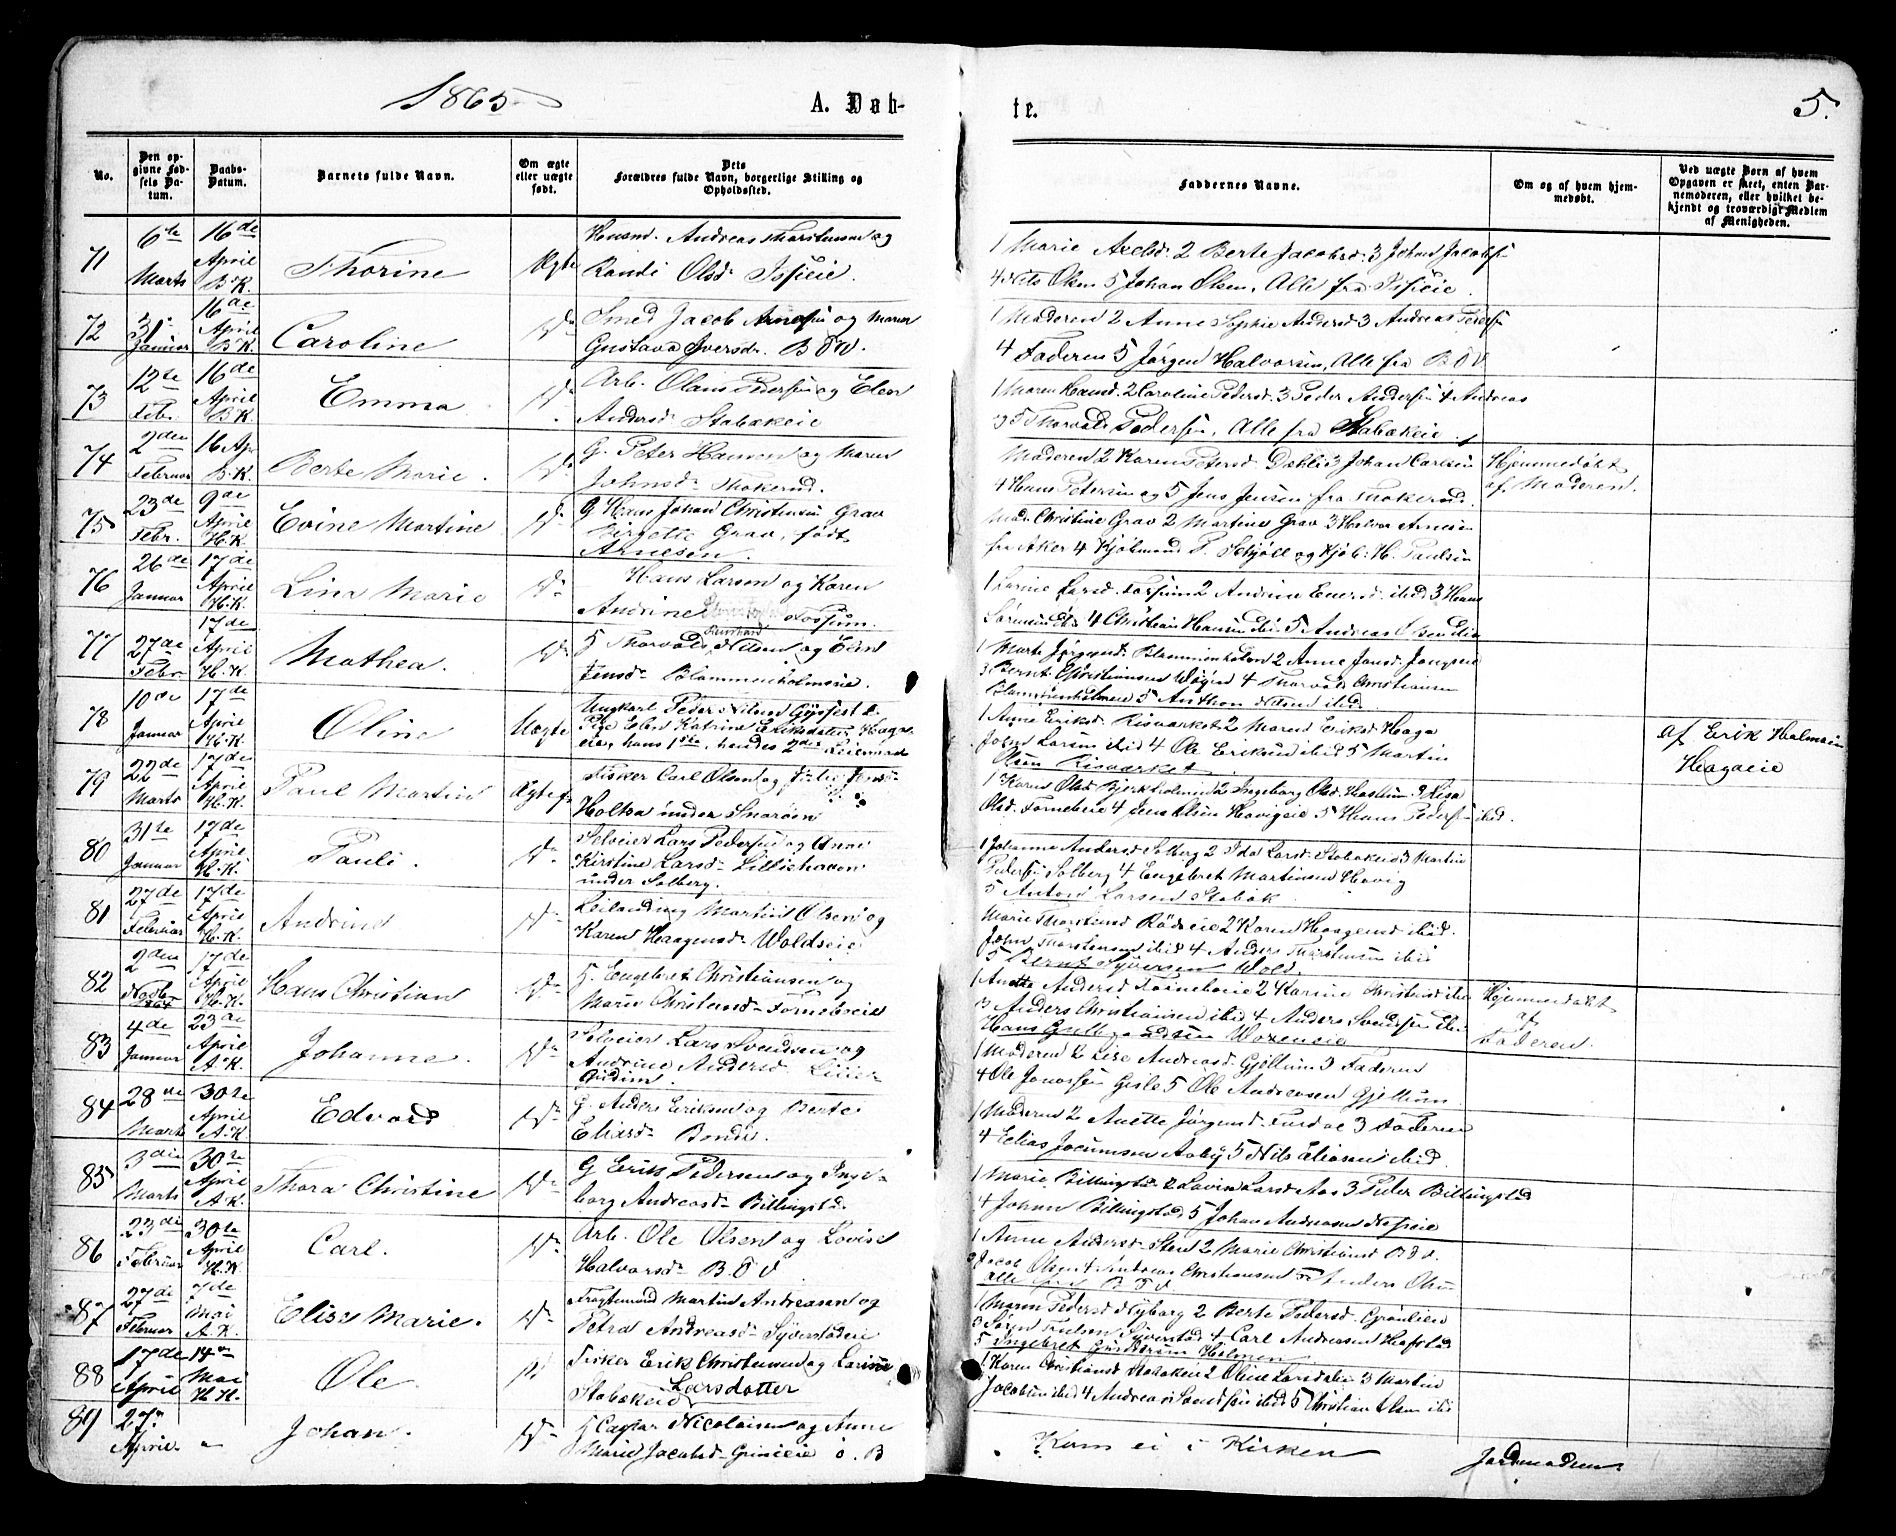 1865
A. Døb-
te.
5.
No.
Den op-
givne Fød-
sels Da-
tum.
Daabs-
Datum.
Barnets fulde Navn.
Om ægte
eller uægte
født.
Dets
Forældres fulde Navn, borgerlige Stilling og
Opholdssted.
Faddernes Navne.
Om og af hvem hjem-
medøbt.
Ved uægte Børn af hvem
Opgaven er skeet, enten Bar-
nemoderen, eller hvilket be-
kjendt og troværdigt Medlem
af Menigheden.
71
6te
Marts
16de
April
B.K.
Thorine
Ægte
Huusm. Andreas Thorstensen og
Randi Olsdr
1 Marie Axelsd. 2 Berte Jacobsd. 3 Johan Jacobs.
4 Nils Olsen 5 Johan Olsen, Alle fra
72
31
Januar
16de
April
B.K.
Caroline
Do
Smed Jacob Arnesen og Maren
Gustava Iversdr. B Ø V.
1 Moderen 2 Anne Sophie Andersd 3 Andreas Peders.
4 Faderen 5 Jørgen Halvorsen, Alle fra B Ø V
73
12te
Febr.
16de
April
B.K.
Emma
Do
Arb. Olaus Pedersen og Elen
Andersdr Stabækeie
1 Maren Hansd. 2 Caroline Pedersd. 3 Peder Andersen 4 Andreas
og 5 Thorvald Pedersen, Alle fra Stabækeie
74
2den
Februar
16 Apr
B.K.
Berte Marie.
Do
G. Peter Hansen og Maren
Johnsdr Thokerud.
Moderen 2 Karen Petersd. Dæhli 3 Johan Carlsen
4 Hans Petersen og 5 Jens Jensen fra Thokerud.
Hjemmedøbt
af Moderen.
75
23de
Febr.
9de
April
H.K.
Evine Martine
Do
G Hans Johan Christensen Grav
Birgitte Grav, født
Arnesen.
Mad. Christine Grav 2 Martine Grav 3 Halvor Arnesen
fra Aker 4 Kjøbmand P. Schjøll og Kjøb: H. Paulsen
76
26de
Januar
17de
April
H.K.
Lina Marie
Do
Hans Larsen og Karen
Andrine Fossum.
1 Larine Larsd. Fossum 2 Andrine Einersd. ibid 3 Hans
Sørensen ibid 4 Christian Hansen ibid 5 Andreas
77
27de
Febr
17de
April
H.K.
Mathea.
Do
H Thorvald Nilsen og Elen
Jensdr Blommenholmeie.
1 Marte Jørgensd. Blommenholm 2 Anne Jansd.
3 Bernt Christiansen 4 Thorvald Christiansen
Blommenholmeie 5 Anthon Nilsen ibid.
78
10de
Januar
17de
April
H.K.
Oline
Uægte
Ungkarl Peder Nilsen og
Pige Elen Katrine Eriksdatter Haga-
eie, hans 1ste, hendes 2det Leiermaal
1 Anne Eriksd. Risværket 2 Maren Eriksd. Haga
John Larsen ibid 4 Ole Eriksen ibid 5 Martin
Olsen Risværket
af Erik Halvorsen
Hagaeie
79
22de
Marts
17de
April
H.K.
Paul Martin
Ægte
Fisker Carl Olsen og Julie Jensd.
Holtva under Snarøen
1 Karen Olsd. 2 Ingeborg Olsd. Haslum 3 Lisa
Olsd. Fornebueie 4 Jens Olsen Høvigeie 5 Hans Pedersen ibid.
80
31te
Januar
17de
April
H.K.
Pauli.
Do
Selveier Lars Pedersen og Anne
Kirstine Larsdr Lilliehaven
under Solberg.
1 Johanne Andersd. Solberg 2 Ida Larsd. Stabækeie 3 Martin
Pedersen Solberg 4 Engebret Martinsen Høvig
5 Anton Larsen Stabæk
81
27de
Februar
17de
April
H.K.
Andrine
Do
Leilænding Martin Olsen og
Karen Haagensdr Woldseie
Marie Thorstensd. 2 Karen Haagensd. ibid.
John Thorstensen ibid 4 Anders Thorstensen ibid
5 Bernt Syversen Wold.
82
2den
Novbr
1864
17de
April
H.K.
Hans Christian
Do
H. Engebret Christiansen og
Marie Christensdr Fornebueie
1 Anette Andersd. Fornebueie 2 Karine Christensd. ibid
3 Anders Christiansen ibid 4 Anders Svendsen ibid
Hjemmedøbt
af
Faderen.
83
4de
Januar
23de
April
A.K.
Johanne.
Do
Selveier Lars Svendsen og
Andrine Andersd.
1 Moderen 2 Lise Andreasd. Gjellum 3 Faderen
4 Ole Jonassen Gisle 5 Ole Andreassen Gjellum
84
28de
Marts
30te
April
A.K.
Edvard
Do
G. Anders Eriksen og Berte
Eliasdr Bondi.
1 Moderen 2 Anette Jørgensd. 3 Faderen
4 Elias Jacumsen Aaby 5 Nils Eliasen ibid.
85
3die
Marts
30te
April
A.K.
Thora Christine
Do
G Erik Pedersen og Inge-
borg Andreasdr Billingstad.
1 Marie Billingstad 2 Lovise Larsd. Aas 3 Peder Billingstad
4 Johan Billingstad 5 Johan Andreasen
86
23de
Februar
30te
April
H.K.
Carl.
Do
Arb. Ole Olsen og Lovise
Halvorsdr B Ø V
1 Anne Andersd. Sten 2 Marie Christiansd. B Ø V.
3 Jacob Olsen 4 Andreas Christiansen 5 Anders Olsen
alle fra B Ø V
87
27de
Februar
7de
Mai
A.K.
Elise Marie.
Do
Fragtemand Martin Andreasen og
Petra Andreasdr Syverstadeie
1 Maren Pedersd Nyborg 2 Berte Pedersd. Grønlien
3 Søren Syverstad 4 Carl Andreasen Hofstad
5 Ingebret Holmen
88
17de
April
14de
Mai
H.K.
Ole
Do
Fisker Erik Christensen og Larine
Larsdatter
Stabækeie
1 Karen Christiansd Stabækeie 2 Oline Larsdatter 3 Martin
Jacobsen ibid 4 Andreas Svendsen ibid 5 Christian Olsen ibid
89
27de
April
"
Johan.
Do
H Casper Nicolaisen og Anne
Marie Jacobsdr Grinieie ø. B
Kom ei i Kirken
Jordmoderen.